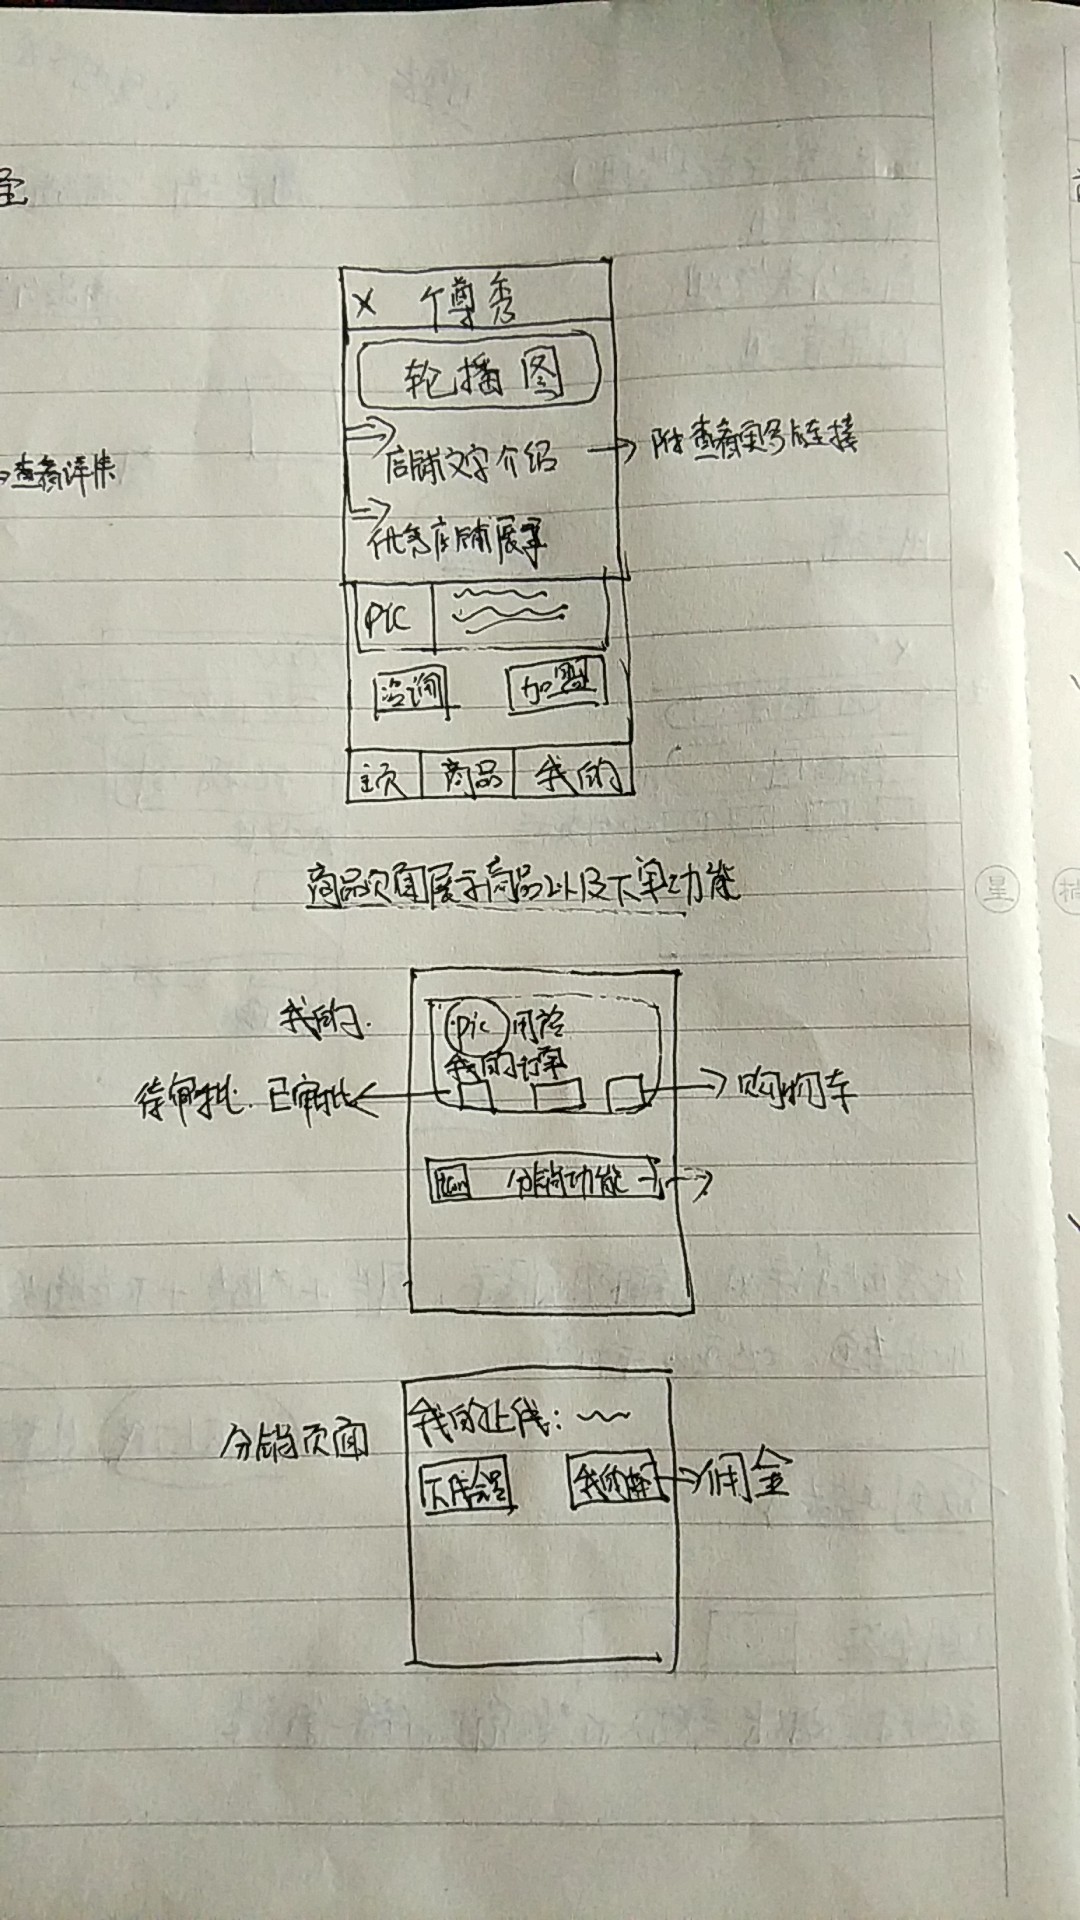 查看详情
X 个尊秀
轮播图
店铺文字介绍
附查看
优秀店铺展示
PIC
咨询 加盟
主页 商品 我的
商品页面展示商品以及下单功能
我的.
pic 用户
我的订单
待审批. 已审批
购物车
Icon 分销功能
分销页面
我的上线:
下线会员 我的
佣金
星